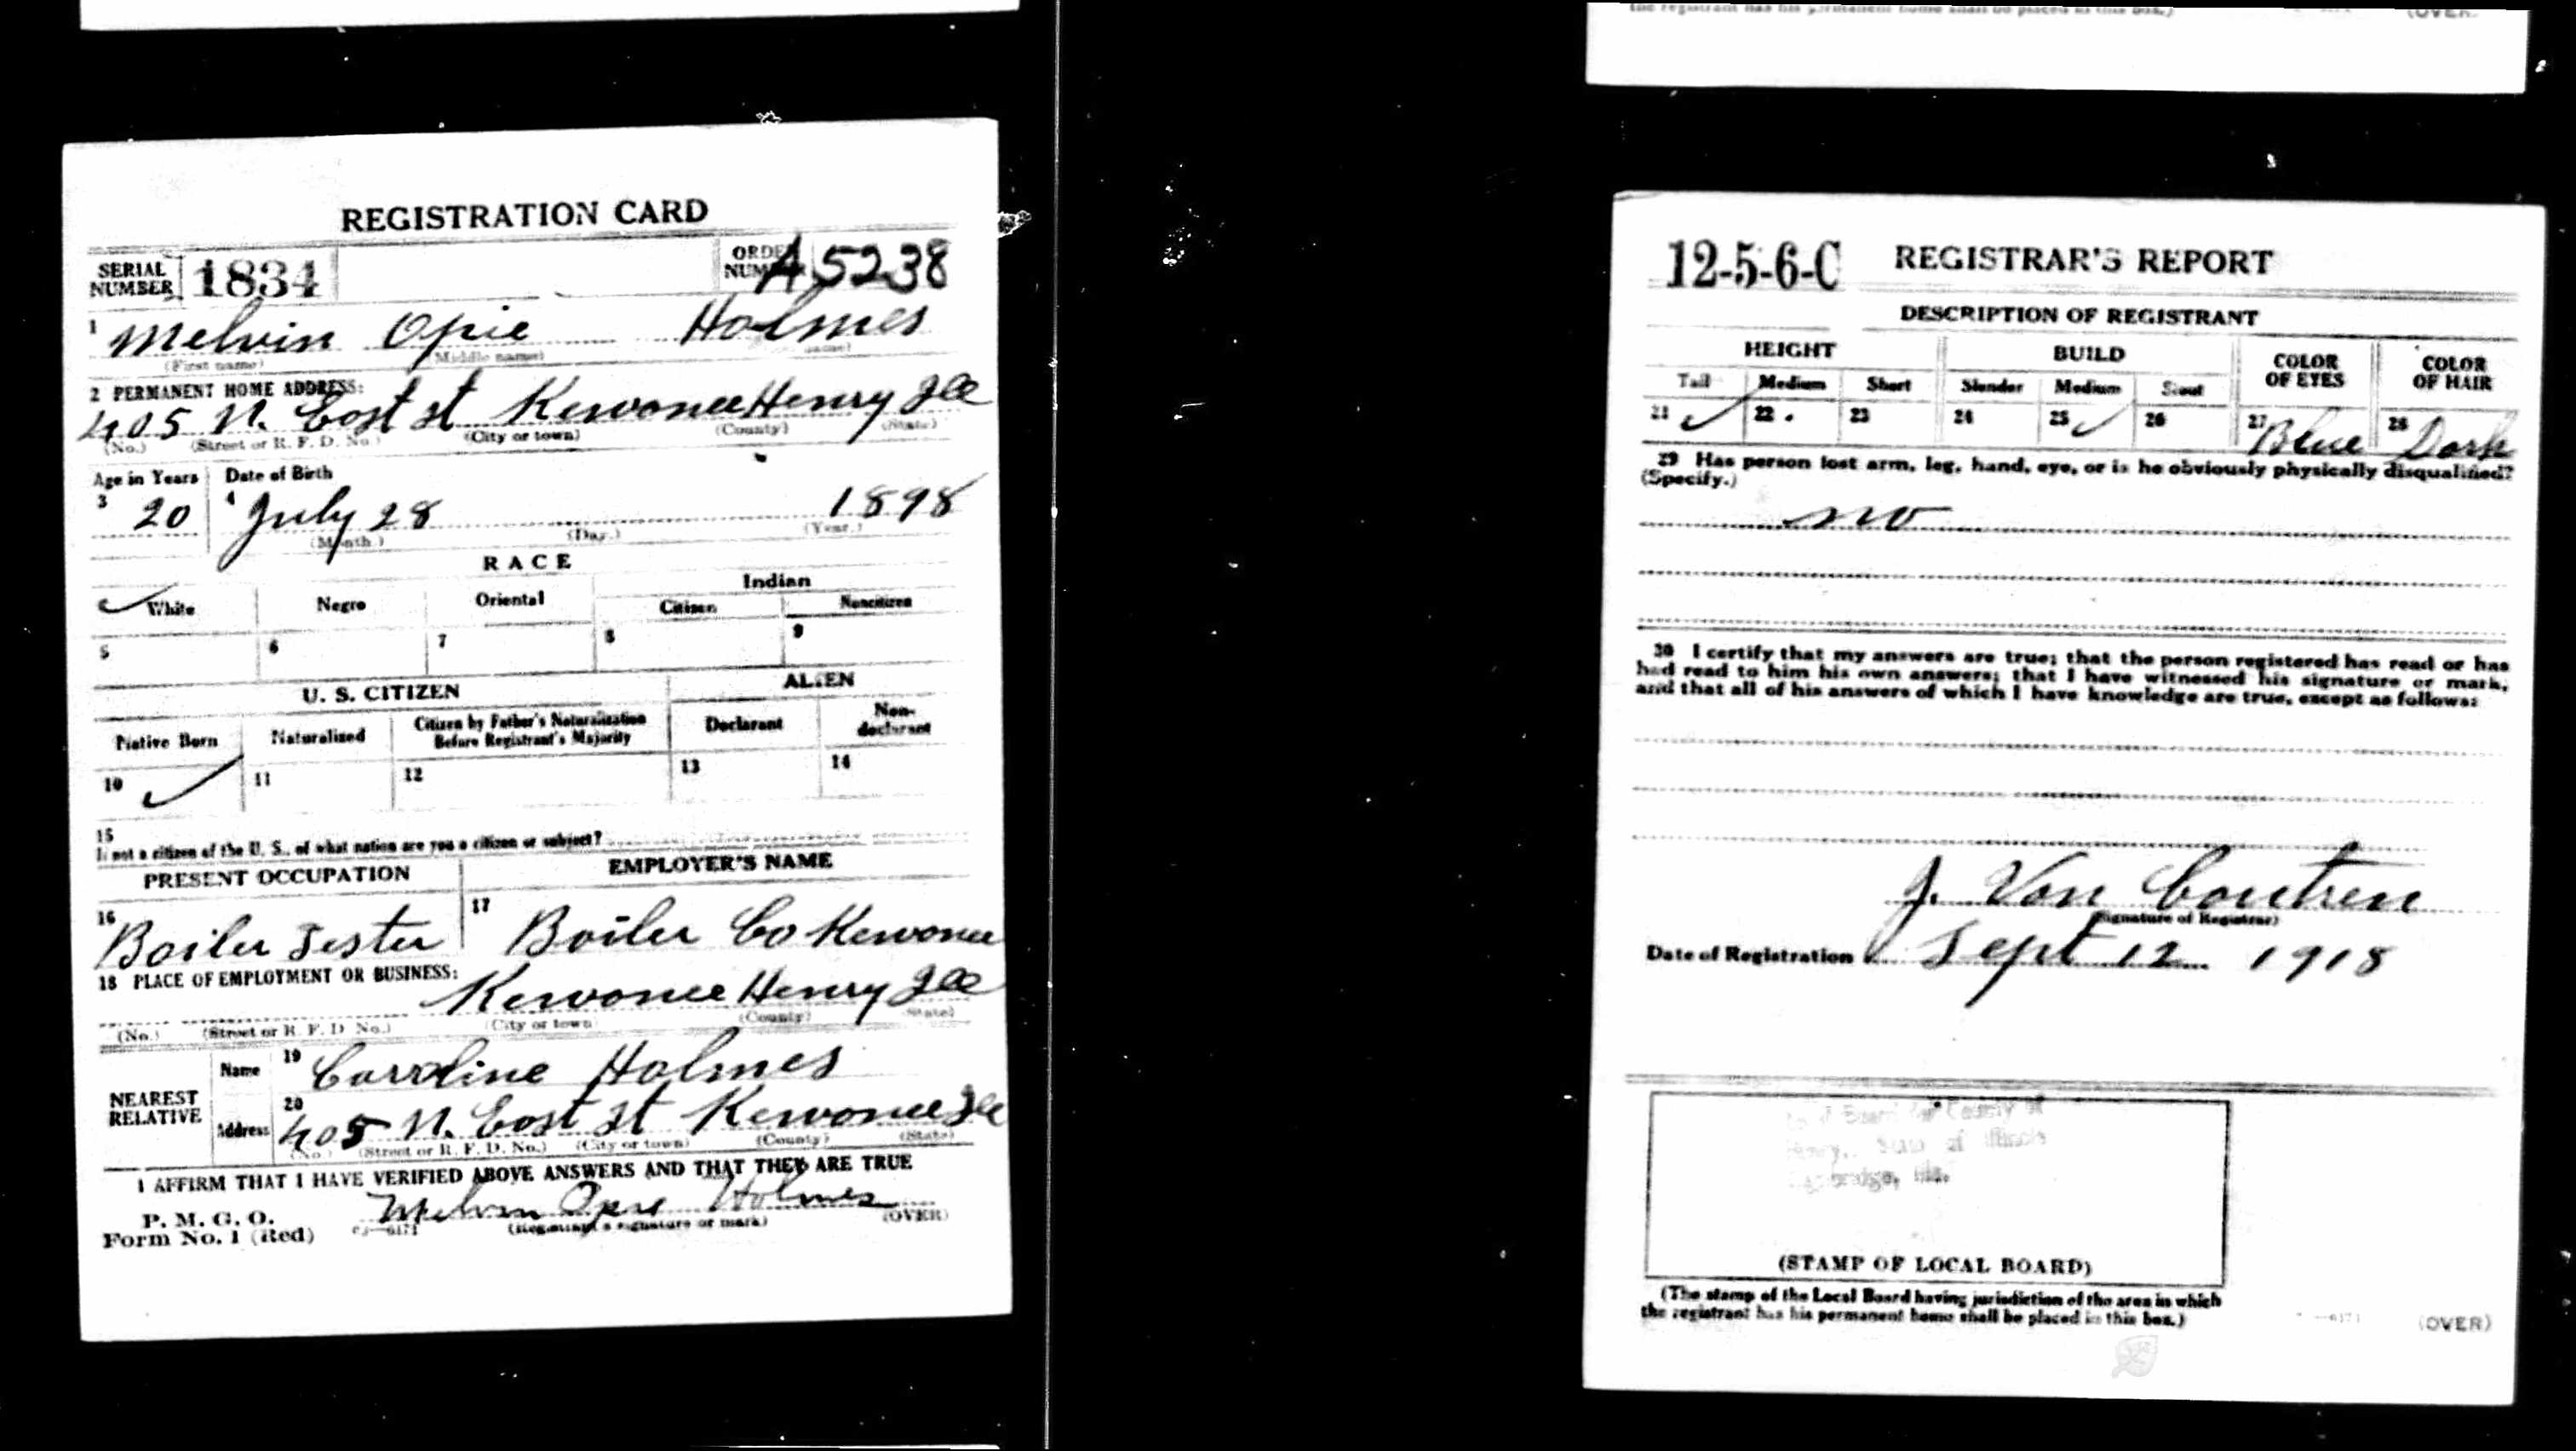 REGISTRATION CARD
SERIAL NUMBER 1834 ORDER NUMBER A5238
1 Melvin Opie Holmes
(First name) (Middle name) name)
2 PERMANENT HOME ADDRESS:
405 N. East st Kewanee Henry Ill
(No.) (Street or R. F. D. No.) (City or town) (County) (State)
Age in Years Date of Birth
3 20 4 July 28 1898
(Month.) (Day.) (Year.)
RACE
White Negro Oriental Indian
Citizen Noncitizen
5 6 7 8 9
U. S. CITIZEN ALIEN
Native Born Naturalized Citizen by Father's Naturalization Before Registrant's Majority Declarant Non-declarant
10 ✓ 11 12 13 14
15
If not a citizen of the U. S., of what nation are you a citizen or subject?
PRESENT OCCUPATION EMPLOYER'S NAME
16 Boiler Tester 17 Boiler Co Kewanee
18 PLACE OF EMPLOYMENT OR BUSINESS:
Kewanee Henry Ill
(No.) (Street or R. F. D. No.) (City or town) (County) (State)
NEAREST RELATIVE
Name 19 Caroline Holmes
Address 20 405 N. East st Kewanee Ill
(No.) (Street or R. F. D. No.) (City or town) (County) (State)
I AFFIRM THAT I HAVE VERIFIED ABOVE ANSWERS AND THAT THEY ARE TRUE
P. M. G. O.
Form No. 1 (Red) Melvin Opie Holmes
(Registrant's signature or mark) (OVER)
the registrant has his permanent home shall be placed in this box.) (OVER)
12-5-6-C REGISTRAR'S REPORT
DESCRIPTION OF REGISTRANT
HEIGHT BUILD COLOR OF EYES COLOR OF HAIR
Tall Medium Short Slender Medium Stout
21 ✓ 22 23 24 25 ✓ 26 27 Blue 28 Dark
29 Has person lost arm, leg, hand, eye, or is he obviously physically disqualified?
(Specify.)
no
30 I certify that my answers are true; that the person registered has read or has
had read to him his own answers; that I have witnessed his signature or mark,
and that all of his answers of which I have knowledge are true, except as follows:
J. Van Coutren
(Signature of Registrar)
Date of Registration Sept 12 1918
Board for County of
Henry, State of Illinois
(STAMP OF LOCAL BOARD)
(The stamp of the Local Board having jurisdiction of the area in which
the registrant has his permanent home shall be placed in this box.)
(OVER)